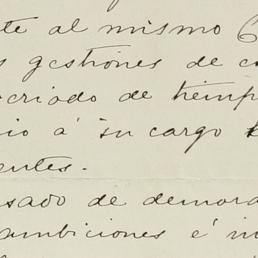 te al mismo C
s gestiones de co
ocriado de tiemp
io á su cargo
entes.-
sado de demora
ambiciones é in